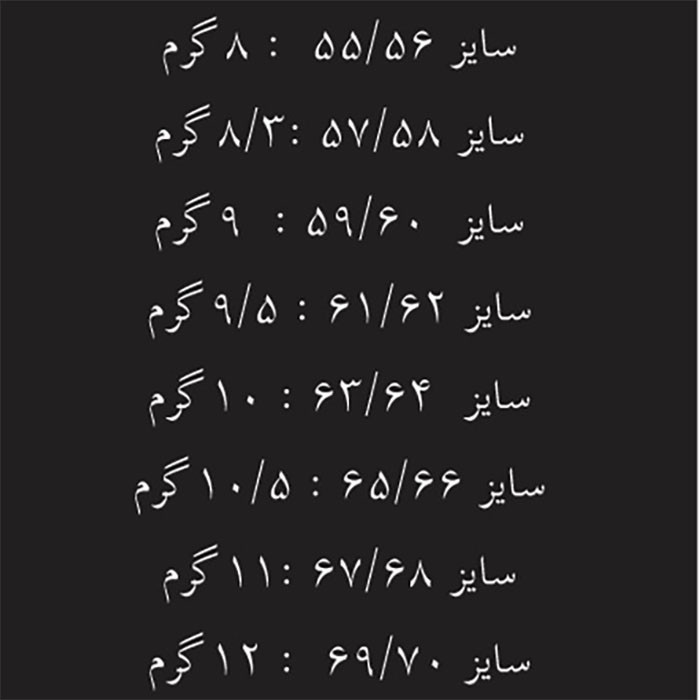 سایز ۵۵/۵۶ : ۸ گرم
سایز ۵۷/۵۸ : ۸/۳ گرم
سایز ۵۹/۶۰ : ۹ گرم
سایز ۶۱/۶۲ : ۹/۵ گرم
سایز ۶۳/۶۴ : ۱۰ گرم
سایز ۶۵/۶۶ : ۱۰/۵ گرم
سایز ۶۷/۶۸ : ۱۱ گرم
سایز ۶۹/۷۰ : ۱۲ گرم